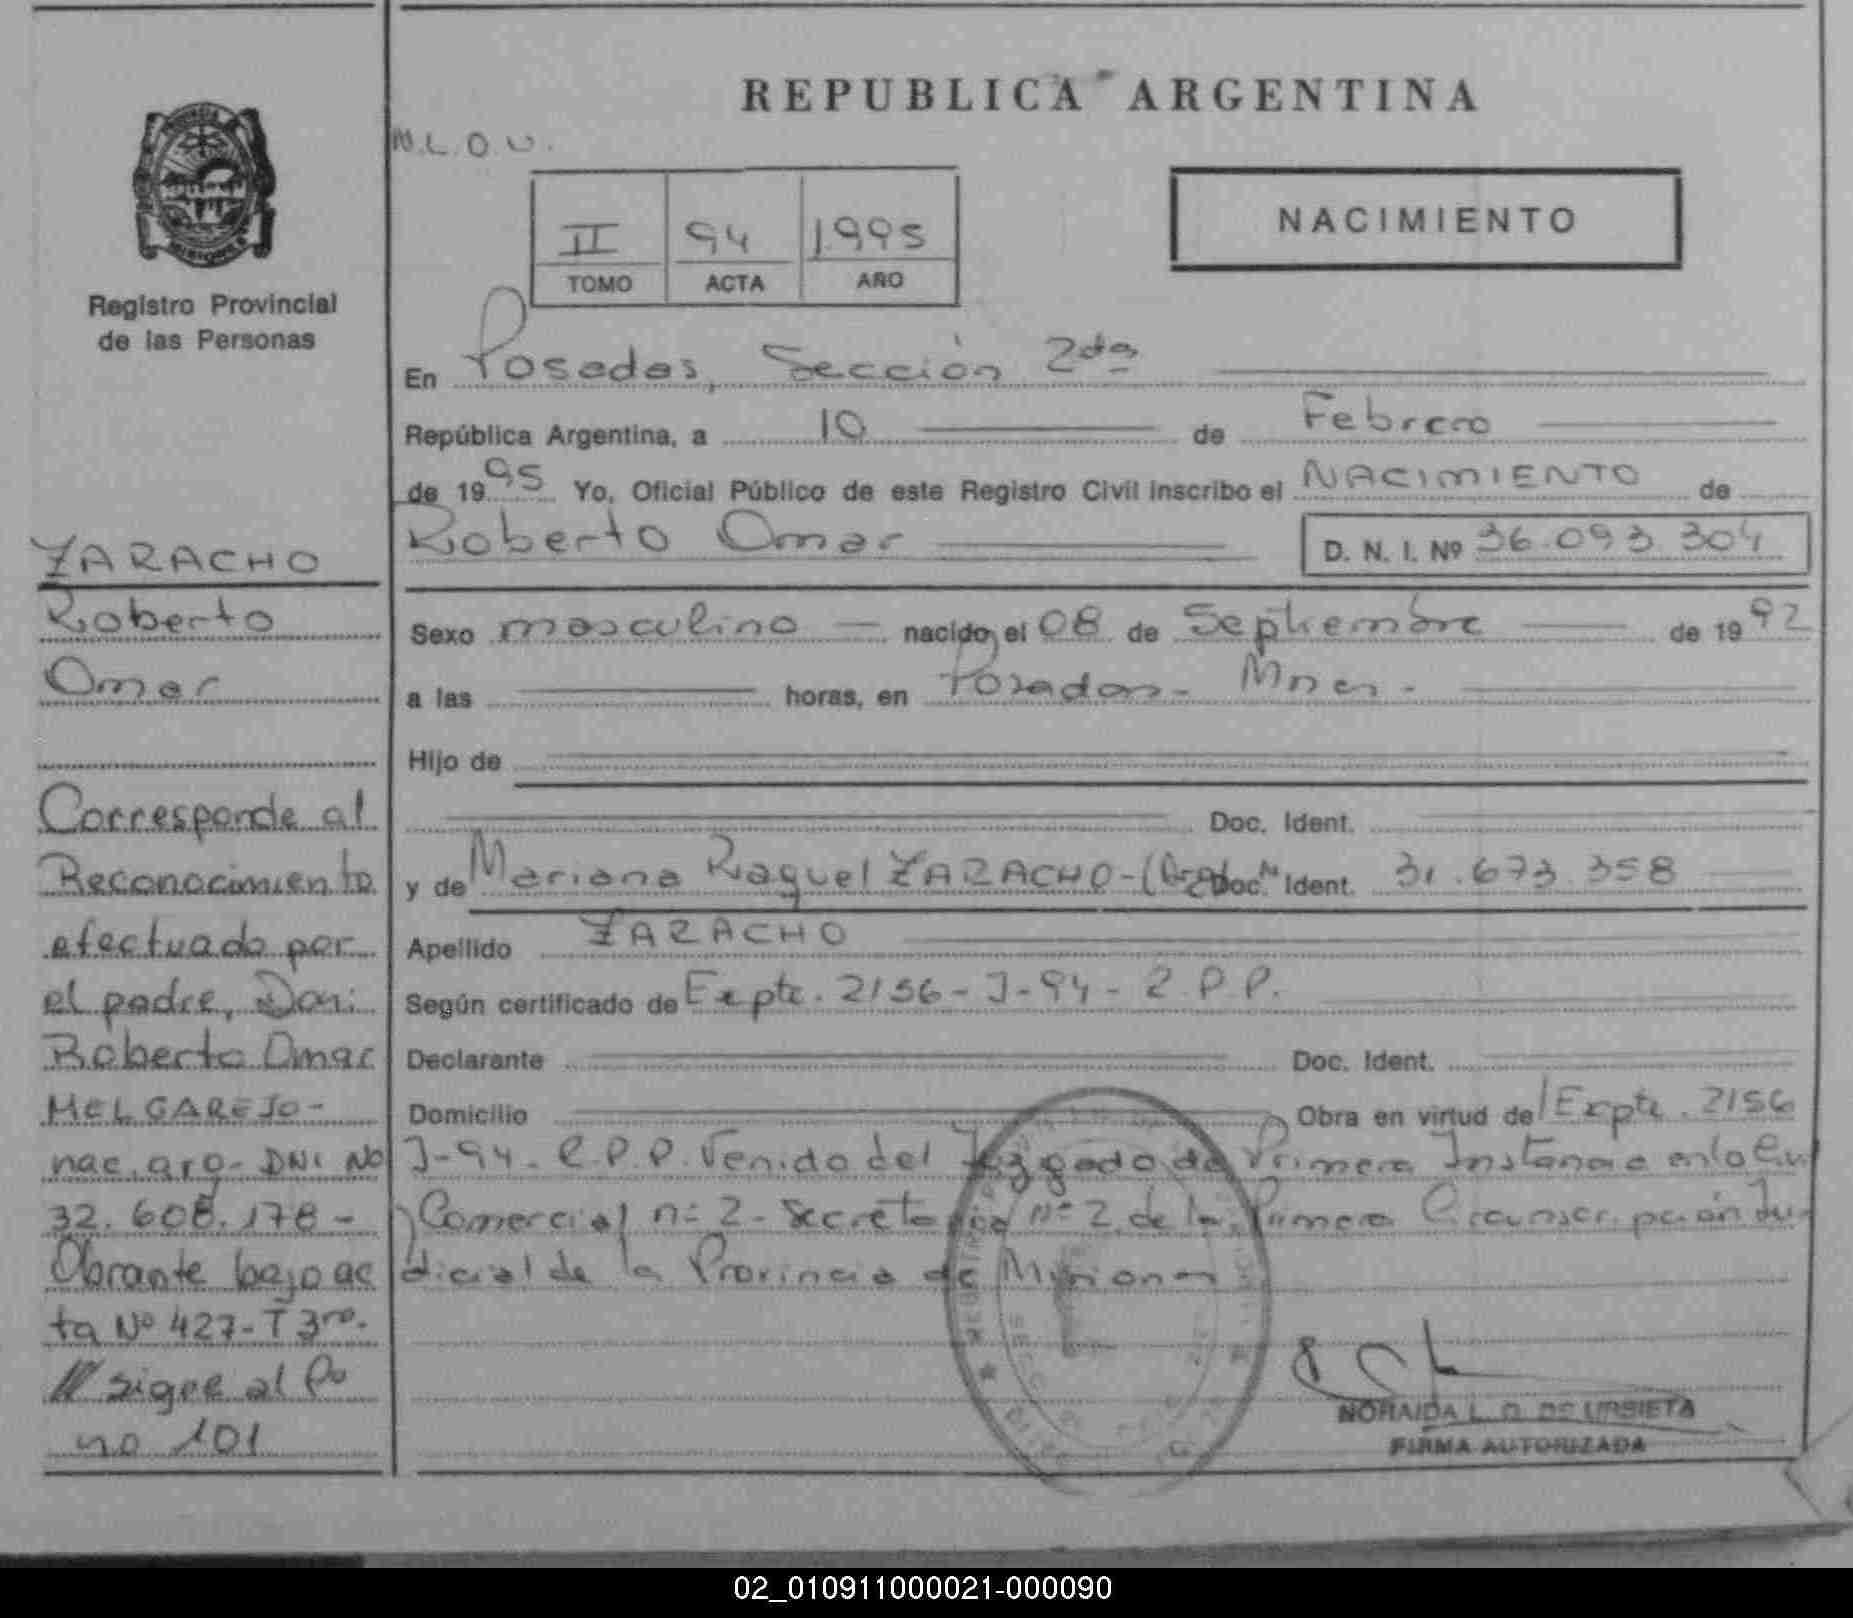 REPUBLICA ARGENTINA
N.L.O.U.
II 94 1.995
TOMO ACTA AÑO
NACIMIENTO
Registro Provincial
de las Personas
En Posadas, Sección 2da
República Argentina, a 10 de Febrero
de 1995 Yo, Oficial Público de este Registro Civil inscribo el NACIMIENTO de
Roberto Omar D. N. I. Nº 36.093.304
Sexo masculino nacido el 08 de Septiembre de 1992
a las horas, en Posadas - Mnes -
Hijo de
Doc. Ident.
y de Mariana Raquel ZARACHO - (Arg) Doc. Ident. 31.673.358
Apellido ZARACHO
Según certificado de Expte. 2156 - J - 94 - R.P.P.
Declarante Doc. Ident.
Domicilio Obra en virtud del Expte. 2156
J-94- R.P.P. Venido del Juzgado de Primera Instancia en lo Civ.
Comercial nº 2 - Secretaria nº 2 de la Primera Circunscripción Ju-
dicial de la Provincia de Misiones
NORAIDA L. O. DE URBIETA
FIRMA AUTORIZADA
ZARACHO
Roberto
Omar
Corresponde al
Reconocimiento
efectuado por
el padre, Don:
Roberto Omar
MELGAREJO -
nac. arg - DNI Nº
32.608.178 -
Obrante bajo ac
ta Nº 427 - T 3ro.
// sigue al Fº
nº 101
02_010911000021-000090